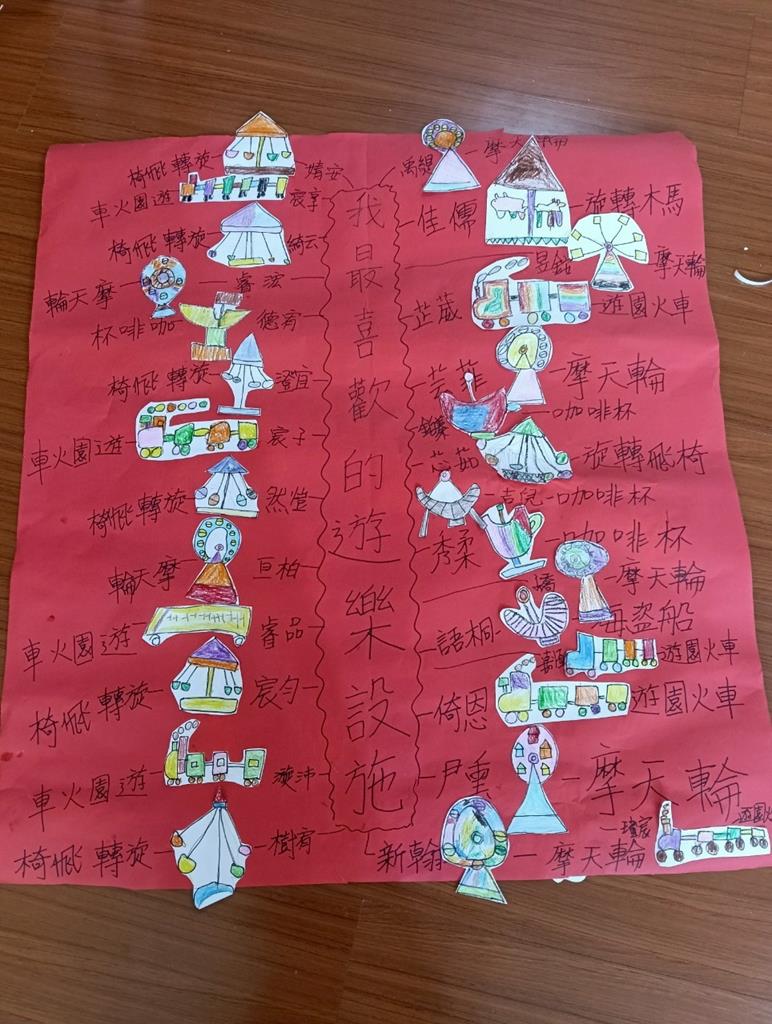 我最喜歡的遊樂設施
婧安 旋轉飛椅
宸享 遊園火車
綺云 旋轉飛椅
睿浤 摩天輪
德宥 咖啡杯
澄宜 旋轉飛椅
宸子 遊園火車
旋轉飛椅
亘柏 摩天輪
睿品 遊園火車
宸勻 旋轉飛椅
遊園火車
樹宥 旋轉飛椅
禹緹 摩天輪
佳儒 旋轉木馬
摩天輪
芷葳 遊園火車
芸菲 摩天輪
咖啡杯
芯茹 旋轉飛椅
咖啡杯
秀柔 咖啡杯
摩天輪
語桐 海盜船
遊園火車
倚恩 遊園火車
摩天輪
遊園火
新翰 摩天輪